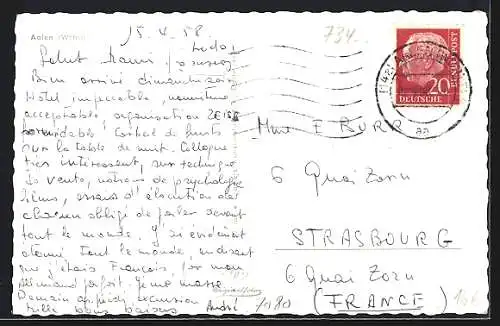 Aalen (Württ.)
15.4.58.
734
Salut Mamie,
Bien arrivé dimanche soir
Hôtel impeccable, nourriture
acceptable, organisation ZEISS
formidable. Corbeil de fruits
sur la table de nuit. Colloque
très intéressant, sur technique
de vente, notions de psychologie
, essais d'élocution où
chacun obligé de parler devant
tout le monde. J'ai évidemment
étonné tout le monde, en disant
que j'étais Français, for mon
allemand parfait. Je me marre.
Demain après-midi excursion
Mille bons baisers André
DEUTSCHE
BUNDESPOST
20
aa
Mme F BURR
6 Quai Zorn
STRASBOURG
6 Quai Zorn
(FRANCE)